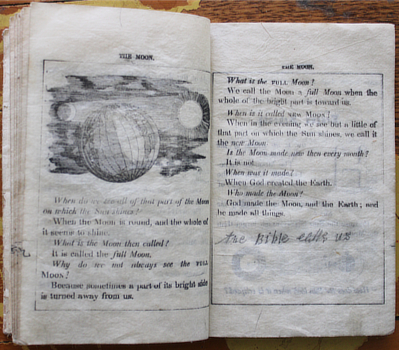 THE MOON.
When do we see all of that part of the Moon
on which the Sun shines?
When the Moon is round, and the whole of
it seems to shine.
What is the Moon then called?
It is called the full Moon.
Why do we not always see the FULL
Moon?
Because sometimes a part of its bright side
is turned away from us.
THE MOON.
What is the FULL Moon?
We call the Moon a full Moon when the
whole of the bright part is toward us.
When is it called NEW Moon?
When in the evening we see but a little of
that part on which the Sun shines, we call it
the new Moon.
Is the Moon made new then every month?
It is not.
When was it made?
When God created the Earth.
Who made the Moon?
God made the Moon, and the Earth; and
he made all things.
the Bible us